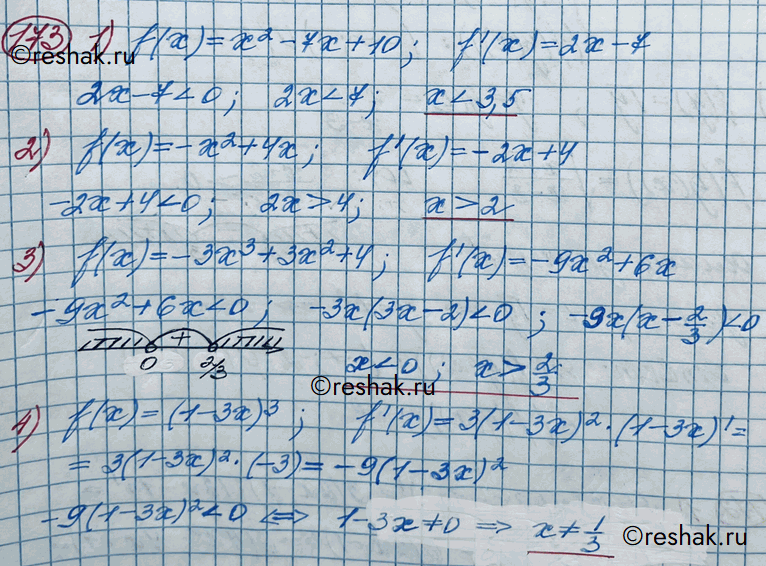 173 1) f(x)=x²-7x+10; f'(x)=2x-7
©reshak.ru
2x-7<0; 2x<7; x<3,5
2) f(x)=-x²+4x; f'(x)=-2x+4
-2x+4<0; 2x>4; x>2
3) f(x)=-3x³+3x²+4; f'(x)=-9x²+6x
-9x²+6x<0; -3x(3x-2)<0; -9x(x-2/3)<0
+
0 2/3 x<0; x>2/3
©reshak.ru
4) f(x)=(1-3x)³; f'(x)=3(1-3x)²·(1-3x)'=
=3(1-3x)²·(-3)=-9(1-3x)²
-9(1-3x)²<0 ⟺ 1-3x≠0 ⟹ x≠1/3
©reshak.ru